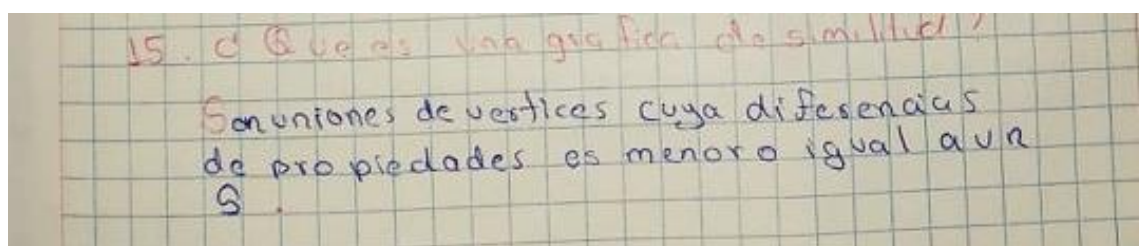 15. ¿Que es una grafica de similitud?
Son uniones de vertices cuya diferencias
de propiedades es menor o igual a un
S.